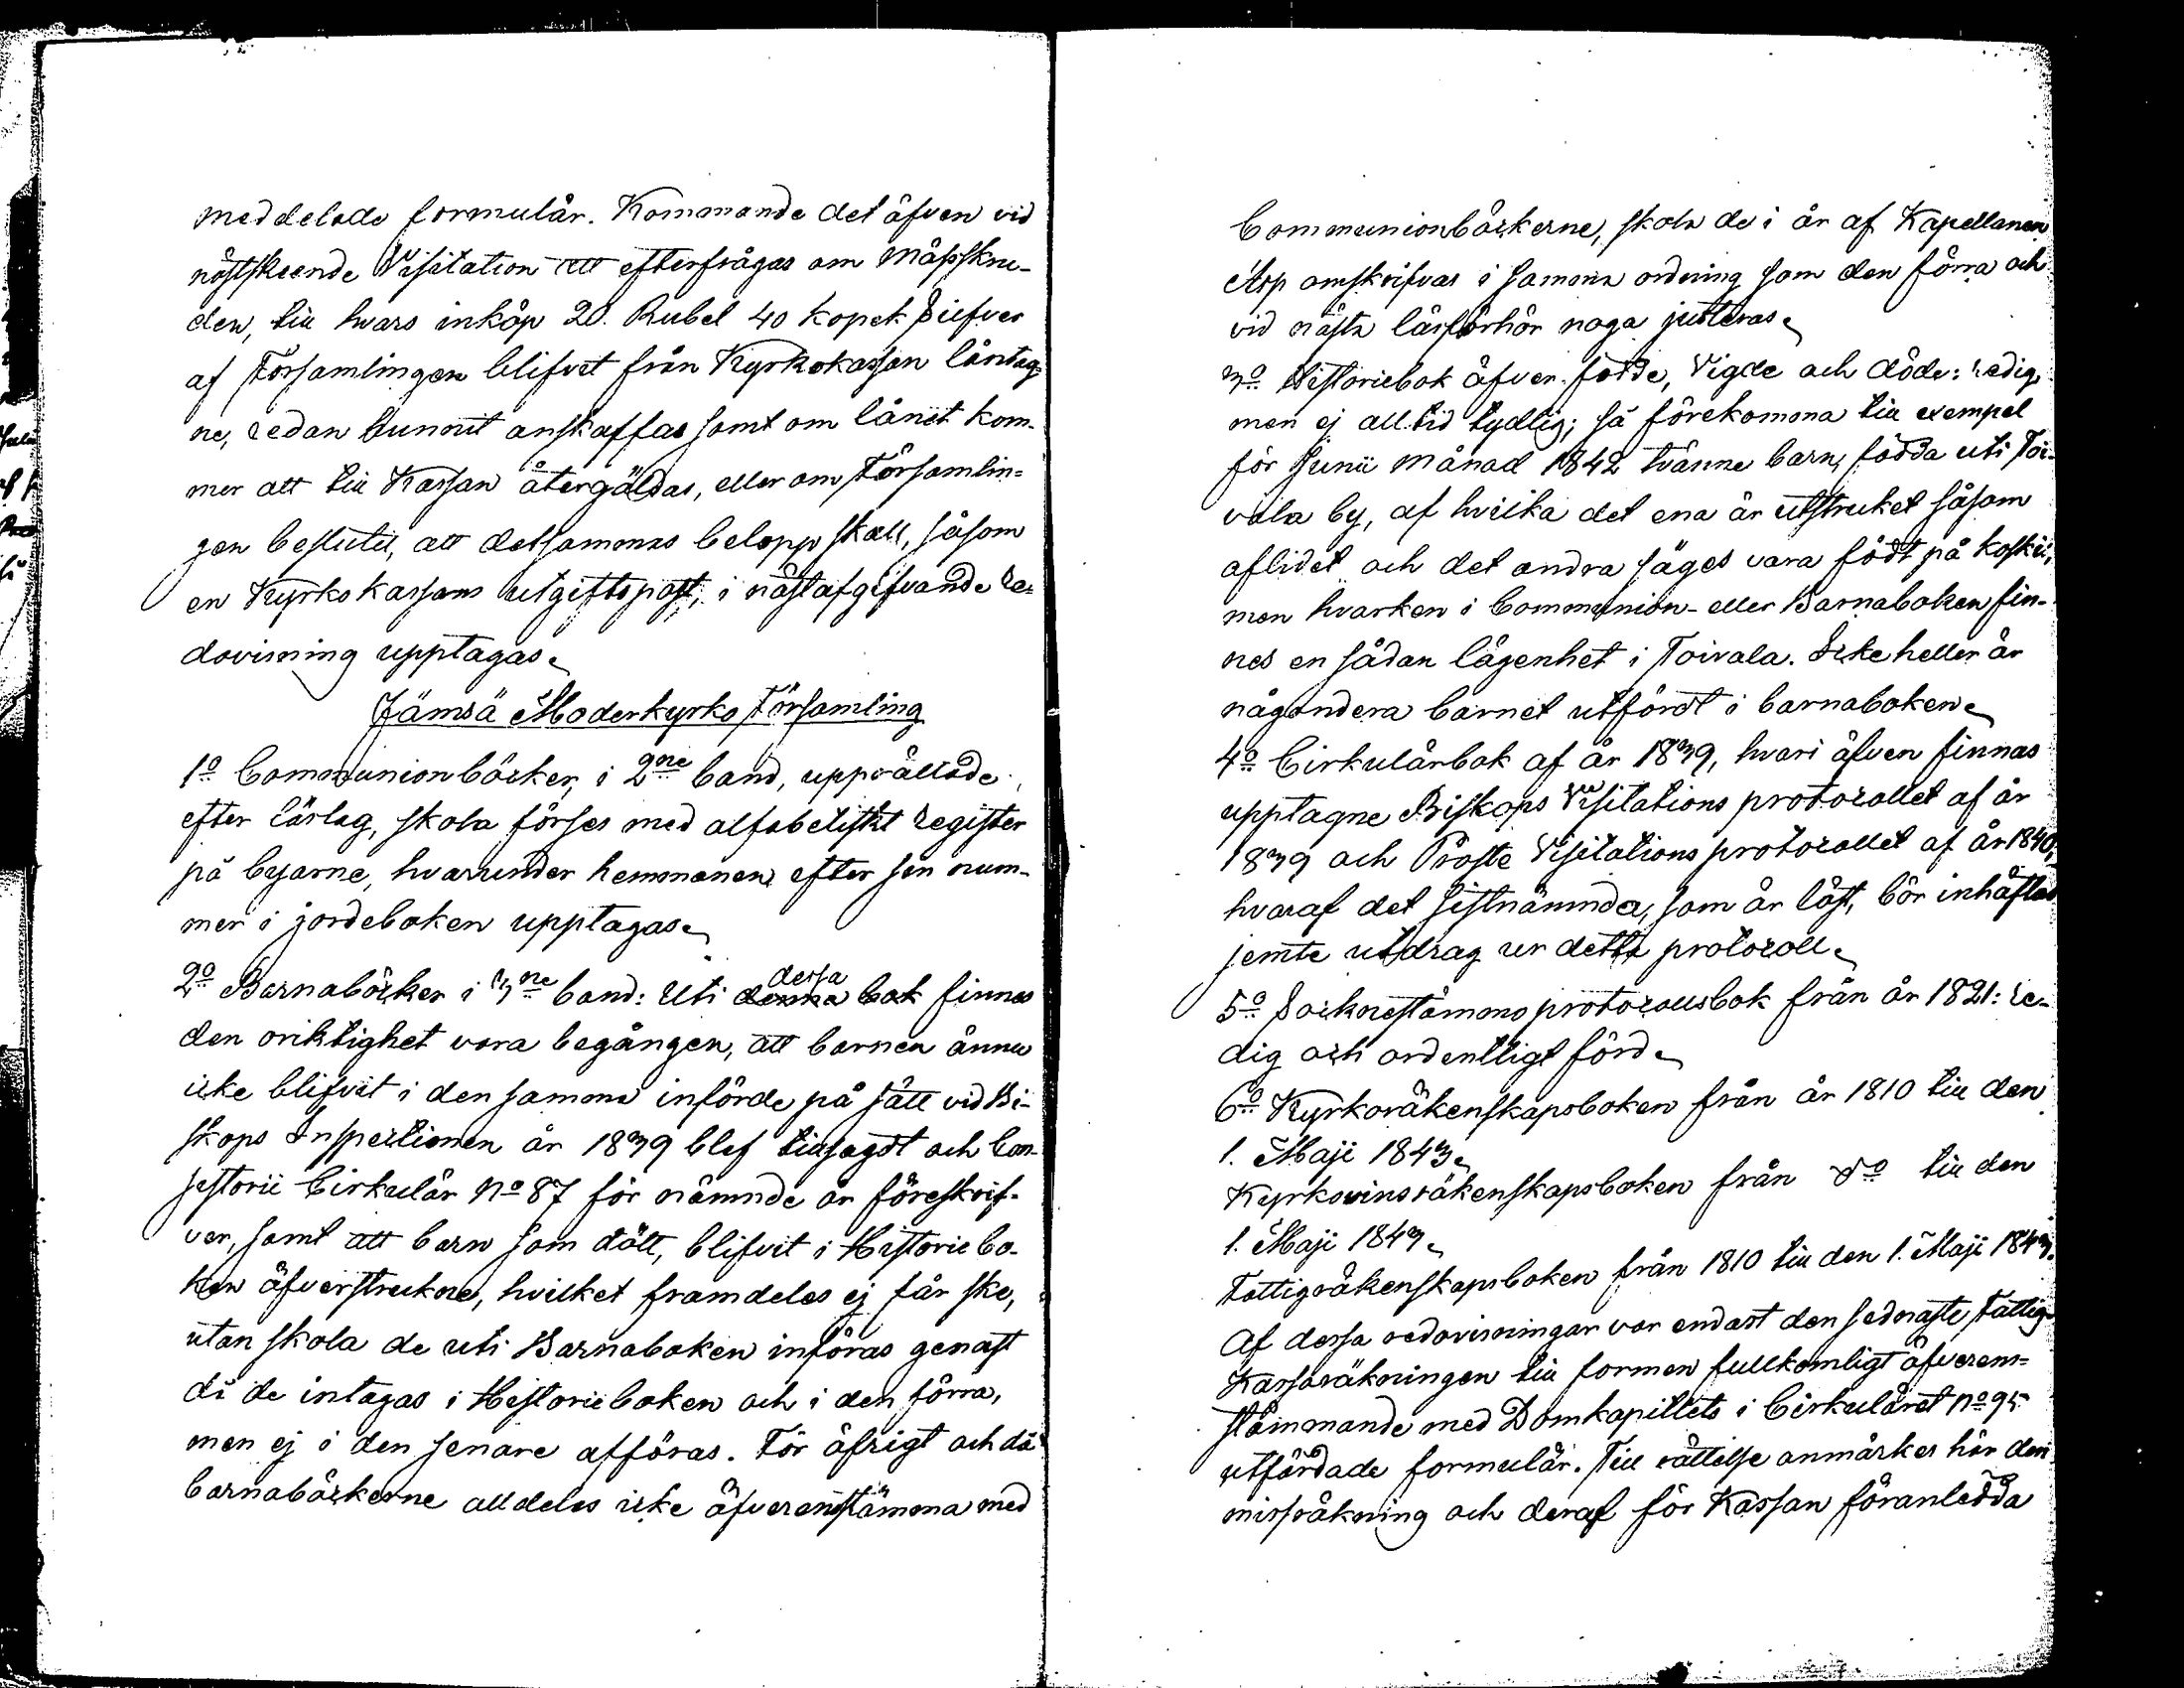 meddelade formulär. Kommande det äfven vid
nästskeende Visitation att efterfrågas om Mässskru-
den, till hvars inköp 20. Rubel 40 kopek Silfver
af Församlingen blifvit från Kyrkokassan låntag-
ne, redan hunnit anskaffas samt om lånet kom-
mer att till Kassan återgäldas, eller om Församlin-
gen beslutit, att detsammas belopp skall, såsom
en Kyrkokassans utgiftspost, i nästafgifvande re-
dovisning upptagas.
Jämsä Moderkyrko Församling
1o Communionböcker, i 2ne band, upprättade
efter lärlag, skola förses med alfabetiskt register
på byarne, hvarunder hemmanen efter sin num-
mer i jordeboken upptagas.
2o Barnaböcker i 3ne band: Uti denna dessa bok finnes
den oriktighet vara begången, att barnen ännu
icke blifvit i densamma införde på sätt vid Bi-
skops Inspectionen år 1839 blef tillsagdt och Con-
sistorii Cirkulär No 87 för nämnde år föreskrif-
ver, samt att barn som dött, blifvit i Historiebo-
ken äfverstrukne, hvilket framdeles ej får ske,
utan skola de uti Barnaboken införas genast
då de intagas i Historieboken och i den förra,
men ej i den senare afföras. För öfrigt och då
barnaböckerne alldeles icke äfverensstämma med
Communionböckerne, skola de i år af Kapellanen
Asp omskrifvas i samma ordning som den förra och
vid nästa läsförhör noga justeras.
3o Historiebok äfver födde, Vigde och döde: redig,
men ej alltid tydlig; så förekomma till exempel
för Junii månad 1842 tvänne barn, födda uti Toi-
vola by, af hvilka det ena är utstruket såsom
aflidet och det andra säges vara födt på koski,
men hvarken i Communion- eller Barnaboken fin-
nes en sådan lägenhet i Toivala. Icke heller är
någondera barnet utfördt i barnaboken.
4o Cirkulärbok af år 1839, hvari äfven finnas
upptagne Biskops Visitations protocollet af år
1839 och Proste Visitations protocollet af år 1840,
hvaraf det sistnämnda, som är löst, bör inhäftas
jemte utdrag ur detta protocoll.
5o Socknestämmo protocollsbok från år 1821: re-
dig och ordentligt förd.
6o Kyrkoräkenskapsboken från år 1810 till den
1. Maji 1843.
Kyrkovinsräkenskapsboken från do till den
1. Maji 1843.
Fattigräkenskapsboken från 1810 till den 1. Maji 1843.
Af dessa redovisningar var endast den sednaste Fattig-
Kassaräkningen till formen fullkomligt äfverens-
stämmande med Domkapitlets i Cirkuläret No 95
utfärdade formulär. Till rättelse anmärkes här den
missräkning och deraf för Kassan föranledda